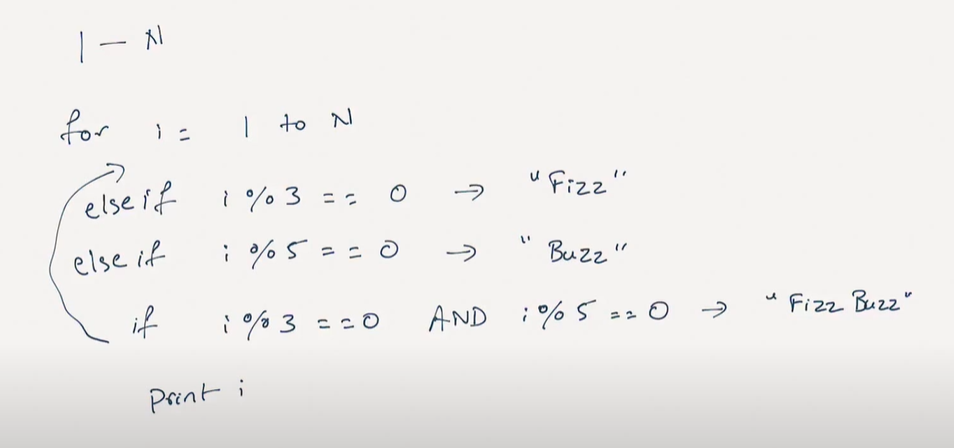 1 - N
for i = 1 to N
else if i % 3 == 0 → "Fizz"
else if i % 5 == 0 → "Buzz"
if i % 3 == 0 AND i % 5 == 0 → "Fizz Buzz"
Print i